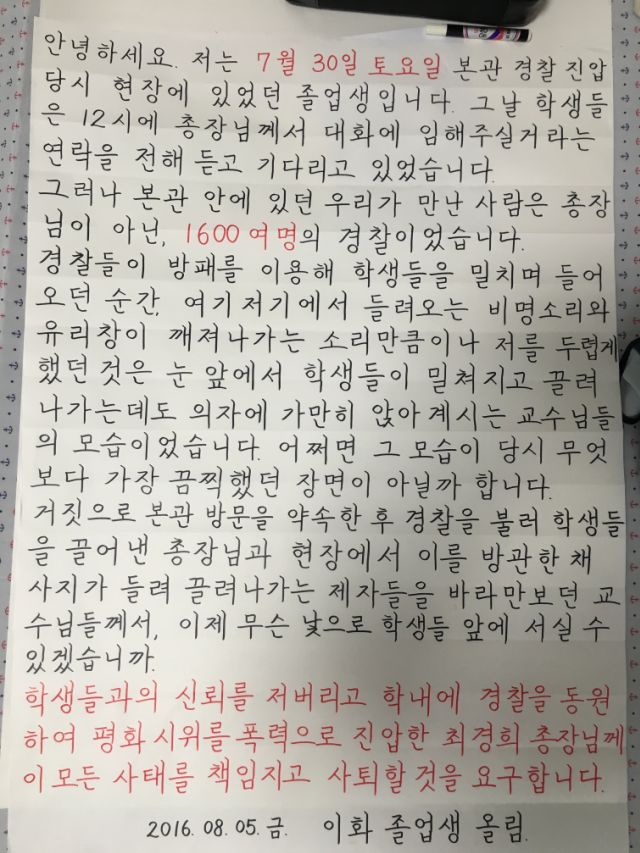 안녕하세요. 저는 7월 30일 토요일 본관 경찰 진압
당시 현장에 있었던 졸업생입니다. 그날 학생들
은 12시에 총장님께서 대화에 임해주실거라는
연락을 전해 듣고 기다리고 있었습니다.
그러나 본관 안에 있던 우리가 만난 사람은 총장
님이 아닌, 1600여명의 경찰이었습니다.
경찰들이 방패를 이용해 학생들을 밀치며 들어
오던 순간, 여기저기에서 들려오는 비명소리와
유리창이 깨져나가는 소리만큼이나 저를 두렵게
했던 것은 눈 앞에서 학생들이 밀쳐지고 끌려
나가는데도 의자에 가만히 앉아계시는 교수님들
의 모습이었습니다. 어쩌면 그 모습이 당시 무엇
보다 가장 끔찍했던 장면이 아닐까 합니다.
거짓으로 본관 방문을 약속한 후 경찰을 불러 학생들
을 끌어낸 총장님과 현장에서 이를 방관한 채
사지가 들려 끌려나가는 제자들을 바라만보던 교
수님들께서, 이제 무슨 낯으로 학생들 앞에 서실 수
있겠습니까.
학생들과의 신뢰를 저버리고 학내에 경찰을 동원
하여 평화 시위를 폭력으로 진압한 최경희 총장님께
이 모든 사태를 책임지고 사퇴할 것을 요구합니다.
2016. 08. 05. 금. 이화 졸업생 올림.